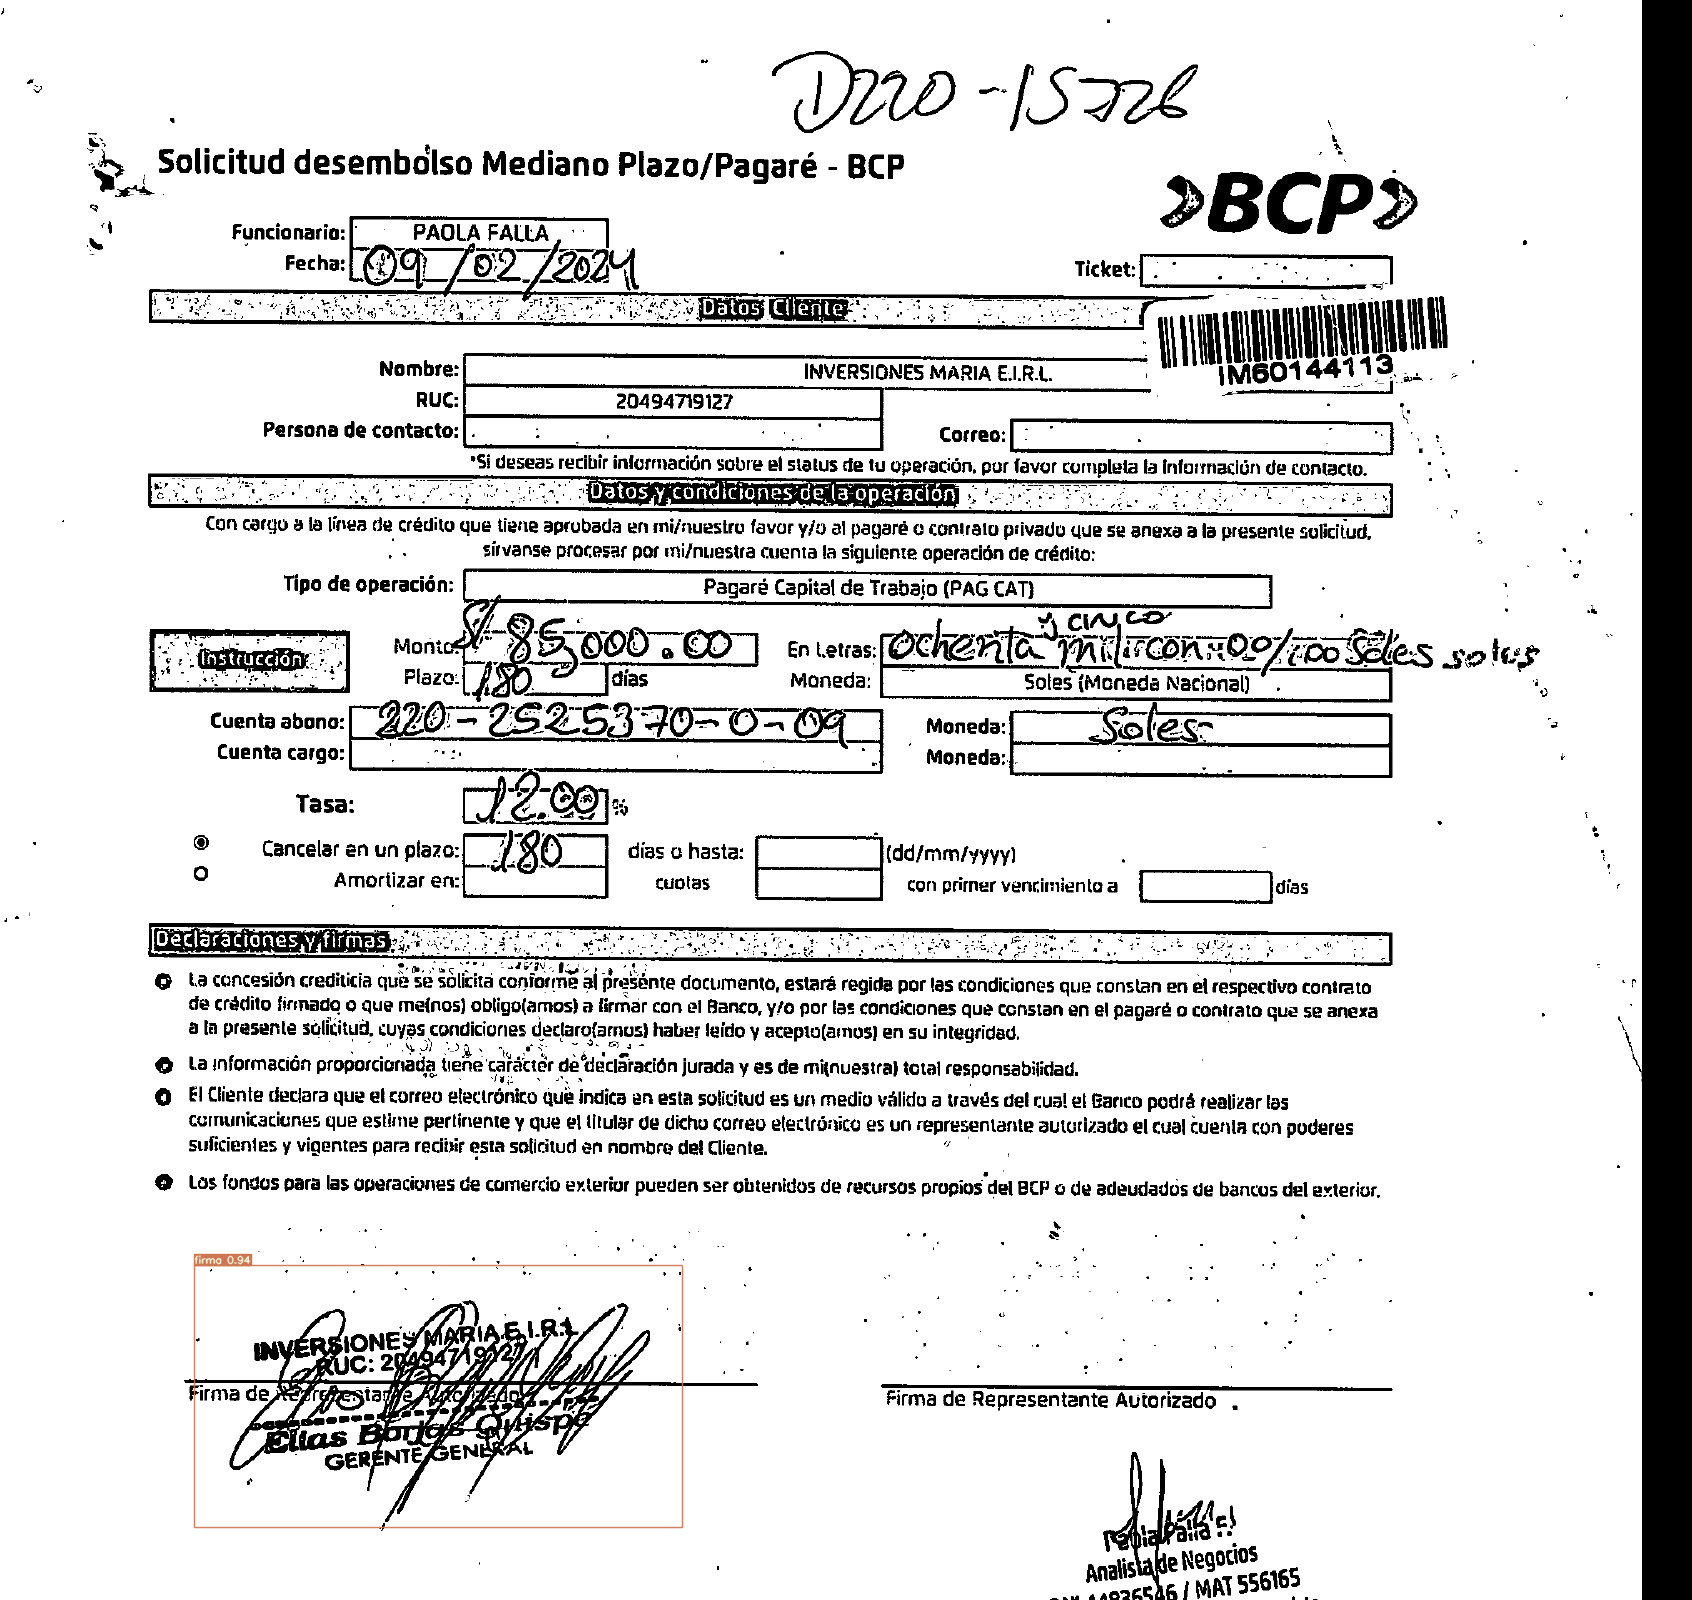 D220-15726
Solicitud desembolso Mediano Plazo/Pagaré - BCP
BCP
Funcionario: PAOLA FALLA
Fecha: 09/02/2024
Ticket:
Datos Cliente
IM60144113
Nombre: INVERSIONES MARIA E.I.R.L.
RUC: 20494719127
Persona de contacto: Correo:
*Si deseas recibir información sobre el status de tu operación, por favor completa la información de contacto.
Datos y condiciones de la operación
Con cargo a la línea de crédito que tiene aprobada en mi/nuestro favor y/o al pagaré o contrato privado que se anexa a la presente solicitud,
sírvanse procesar por mi/nuestra cuenta la siguiente operación de crédito:
Tipo de operación: Pagaré Capital de Trabajo (PAG CAT)
Instrucción
Monto: S/ 85,000.00 En Letras: Ochenta y cinco mil con 00/100 Soles soles
Plazo: 180 días Moneda: Soles (Moneda Nacional)
Cuenta abono: 220-2525370-0-09 Moneda: Soles
Cuenta cargo: Moneda:
Tasa: 12.00 %
Cancelar en un plazo: 180 días o hasta: (dd/mm/yyyy)
Amortizar en: cuotas con primer vencimiento a días
Declaraciones y firmas
La concesión crediticia que se solicita conforme al presente documento, estará regida por las condiciones que constan en el respectivo contrato
de crédito firmado o que me(nos) obligo(amos) a firmar con el Banco, y/o por las condiciones que constan en el pagaré o contrato que se anexa
a la presente solicitud, cuyas condiciones declaro(amos) haber leído y acepto(amos) en su integridad.
La información proporcionada tiene carácter de declaración jurada y es de mi(nuestra) total responsabilidad.
El Cliente declara que el correo electrónico que indica en esta solicitud es un medio válido a través del cual el Banco podrá realizar las
comunicaciones que estime pertinente y que el titular de dicho correo electrónico es un representante autorizado el cual cuenta con poderes
suficientes y vigentes para recibir esta solicitud en nombre del Cliente.
Los fondos para las operaciones de comercio exterior pueden ser obtenidos de recursos propios del BCP o de adeudados de bancos del exterior.
firma 0.94
INVERSIONES MARIA E.I.R.L
RUC: 20494719127
Firma de Representante Autorizado
Elias Borjas Quispe
GERENTE GENERAL
Firma de Representante Autorizado
Paola Falla F.
Analista de Negocios
44836546 / MAT 556165